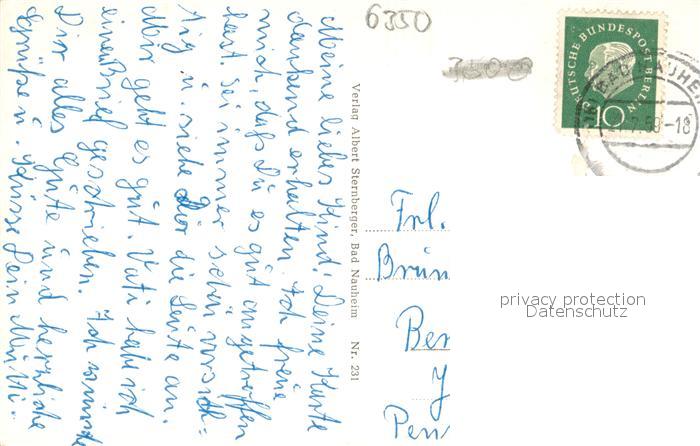 Meine liebes Kind! Deine Karte
dankend erhalten. Ich freue
mich, daß Du es gut angetroffen
hast. Sei immer schön vorsich=
tig u. siehe Dir die Leute an.
Mir geht es gut. Vati habe ich
einen Brief geschrieben. Ich wünsche
Dir alles Gute und herzliche
Grüße u. Küsse Dein Mutti.
Verlag Albert Sternberger, Bad Nauheim Nr. 231
6350
DEUTSCHE BUNDESPOST BERLIN
10
BAD NAUHEIM
7.59-18
Frl.
Brün
Ber
J
Pen
privacy protection
Datenschutz